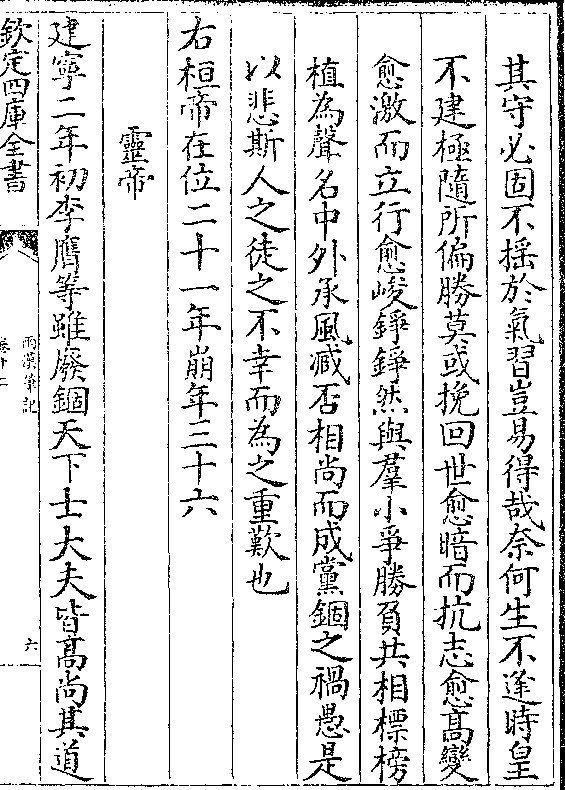 其守必固不揺於氣習豈易得哉奈何生不逢時皇
不建極隨所偏勝莫或挽回世愈暗而抗志愈髙變
愈激而立行愈峻錚錚然與羣小爭勝負共相標榜
植為聲名中外承風臧否相尚而成黨錮之禍愚是
以悲斯人之徒之不幸而為之重歎也
右桓帝在位二十一年崩年三十六
靈帝
建寧二年初李膺等雖廢錮天下士大夫皆髙尚其道
欽定四庫全書
兩漢筆記
卷十二
六